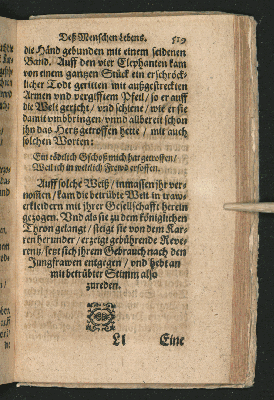 Deß Menschen Lebens. 519
die Händ gebunden mit einem seidenen
Band. Auff den vier Elephanten kam
von einem gantzen Stück ein erschröck-
licher Todt geritten mit außgestreckten
Armen vnd vergifftem Pfeil / so er auff
die Welt gericht / vnd schiene / wie er sie
damit vmbbringen / vnnd alber eit schon
ihn das Hertz getroffen hette / mit auch
solchen Worten:
Ein tödtlich Gschoß mich hat getroffen /
Weil ich in weltlich Frewd ersoffen.
Auff solche Weiß / inmassen ihr ver-
nom̃en / kam die betrübte Welt in traw-
erkleidern mit ihrer Gesellschafft herein
gezogen. Vnd als sie zu dem königlichen
Thron gelangt / steigt sie von dem Kar-
ren herunder / erzeigt gebührende Reve-
rentz / setzt sich ihrem Gebrauch nach den
Jungfrawen entgegen / vnd hebt an
mit betrübter Stimm also
zureden.
Ll Eine